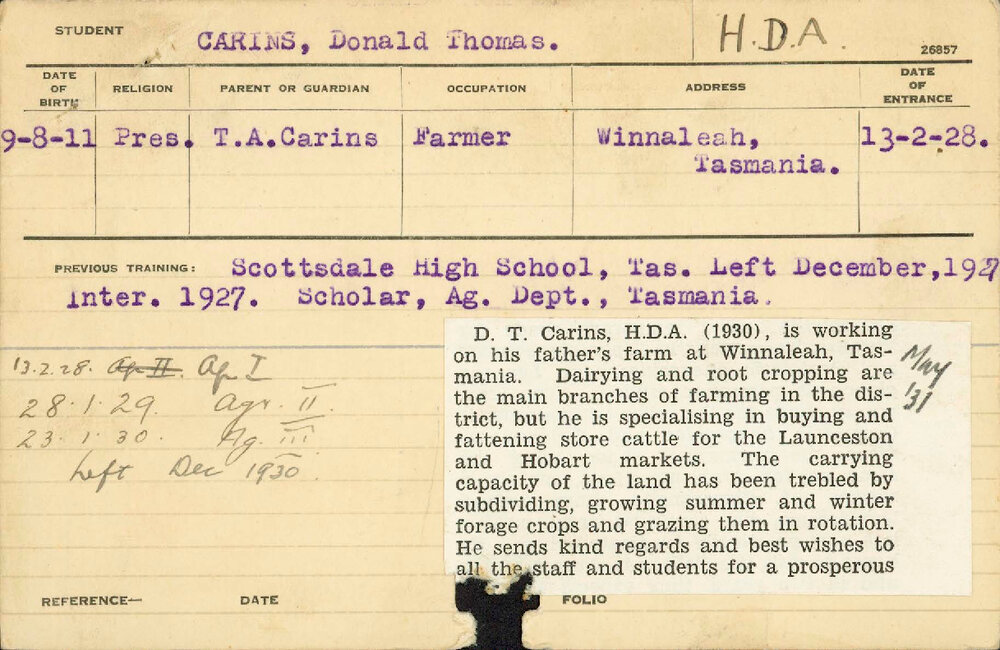 STUDENT CARINS, Donald Thomas. H.D.A. 26857
DATE OF BIRTH RELIGION PARENT OR GUARDIAN OCCUPATION ADDRESS DATE OF ENTRANCE
9-8-11 Pres. T.A.Carins Farmer Winnaleah, 13-2-28.
Tasmania.
PREVIOUS TRAINING: Scottsdale High School, Tas. Left December,1927
Inter. 1927. Scholar, Ag. Dept., Tasmania.
13.2.28. Ag II. Ag I
28.1.29. Agr. II.
23.1.30. Ag. III
Left Dec 1930.
D. T. Carins, H.D.A. (1930), is working
on his father's farm at Winnaleah, Tas-
mania. Dairying and root cropping are
the main branches of farming in the dis-
trict, but he is specialising in buying and
fattening store cattle for the Launceston
and Hobart markets. The carrying
capacity of the land has been trebled by
subdividing, growing summer and winter
forage crops and grazing them in rotation.
He sends kind regards and best wishes to
all the staff and students for a prosperous
May
'31
REFERENCE— DATE FOLIO